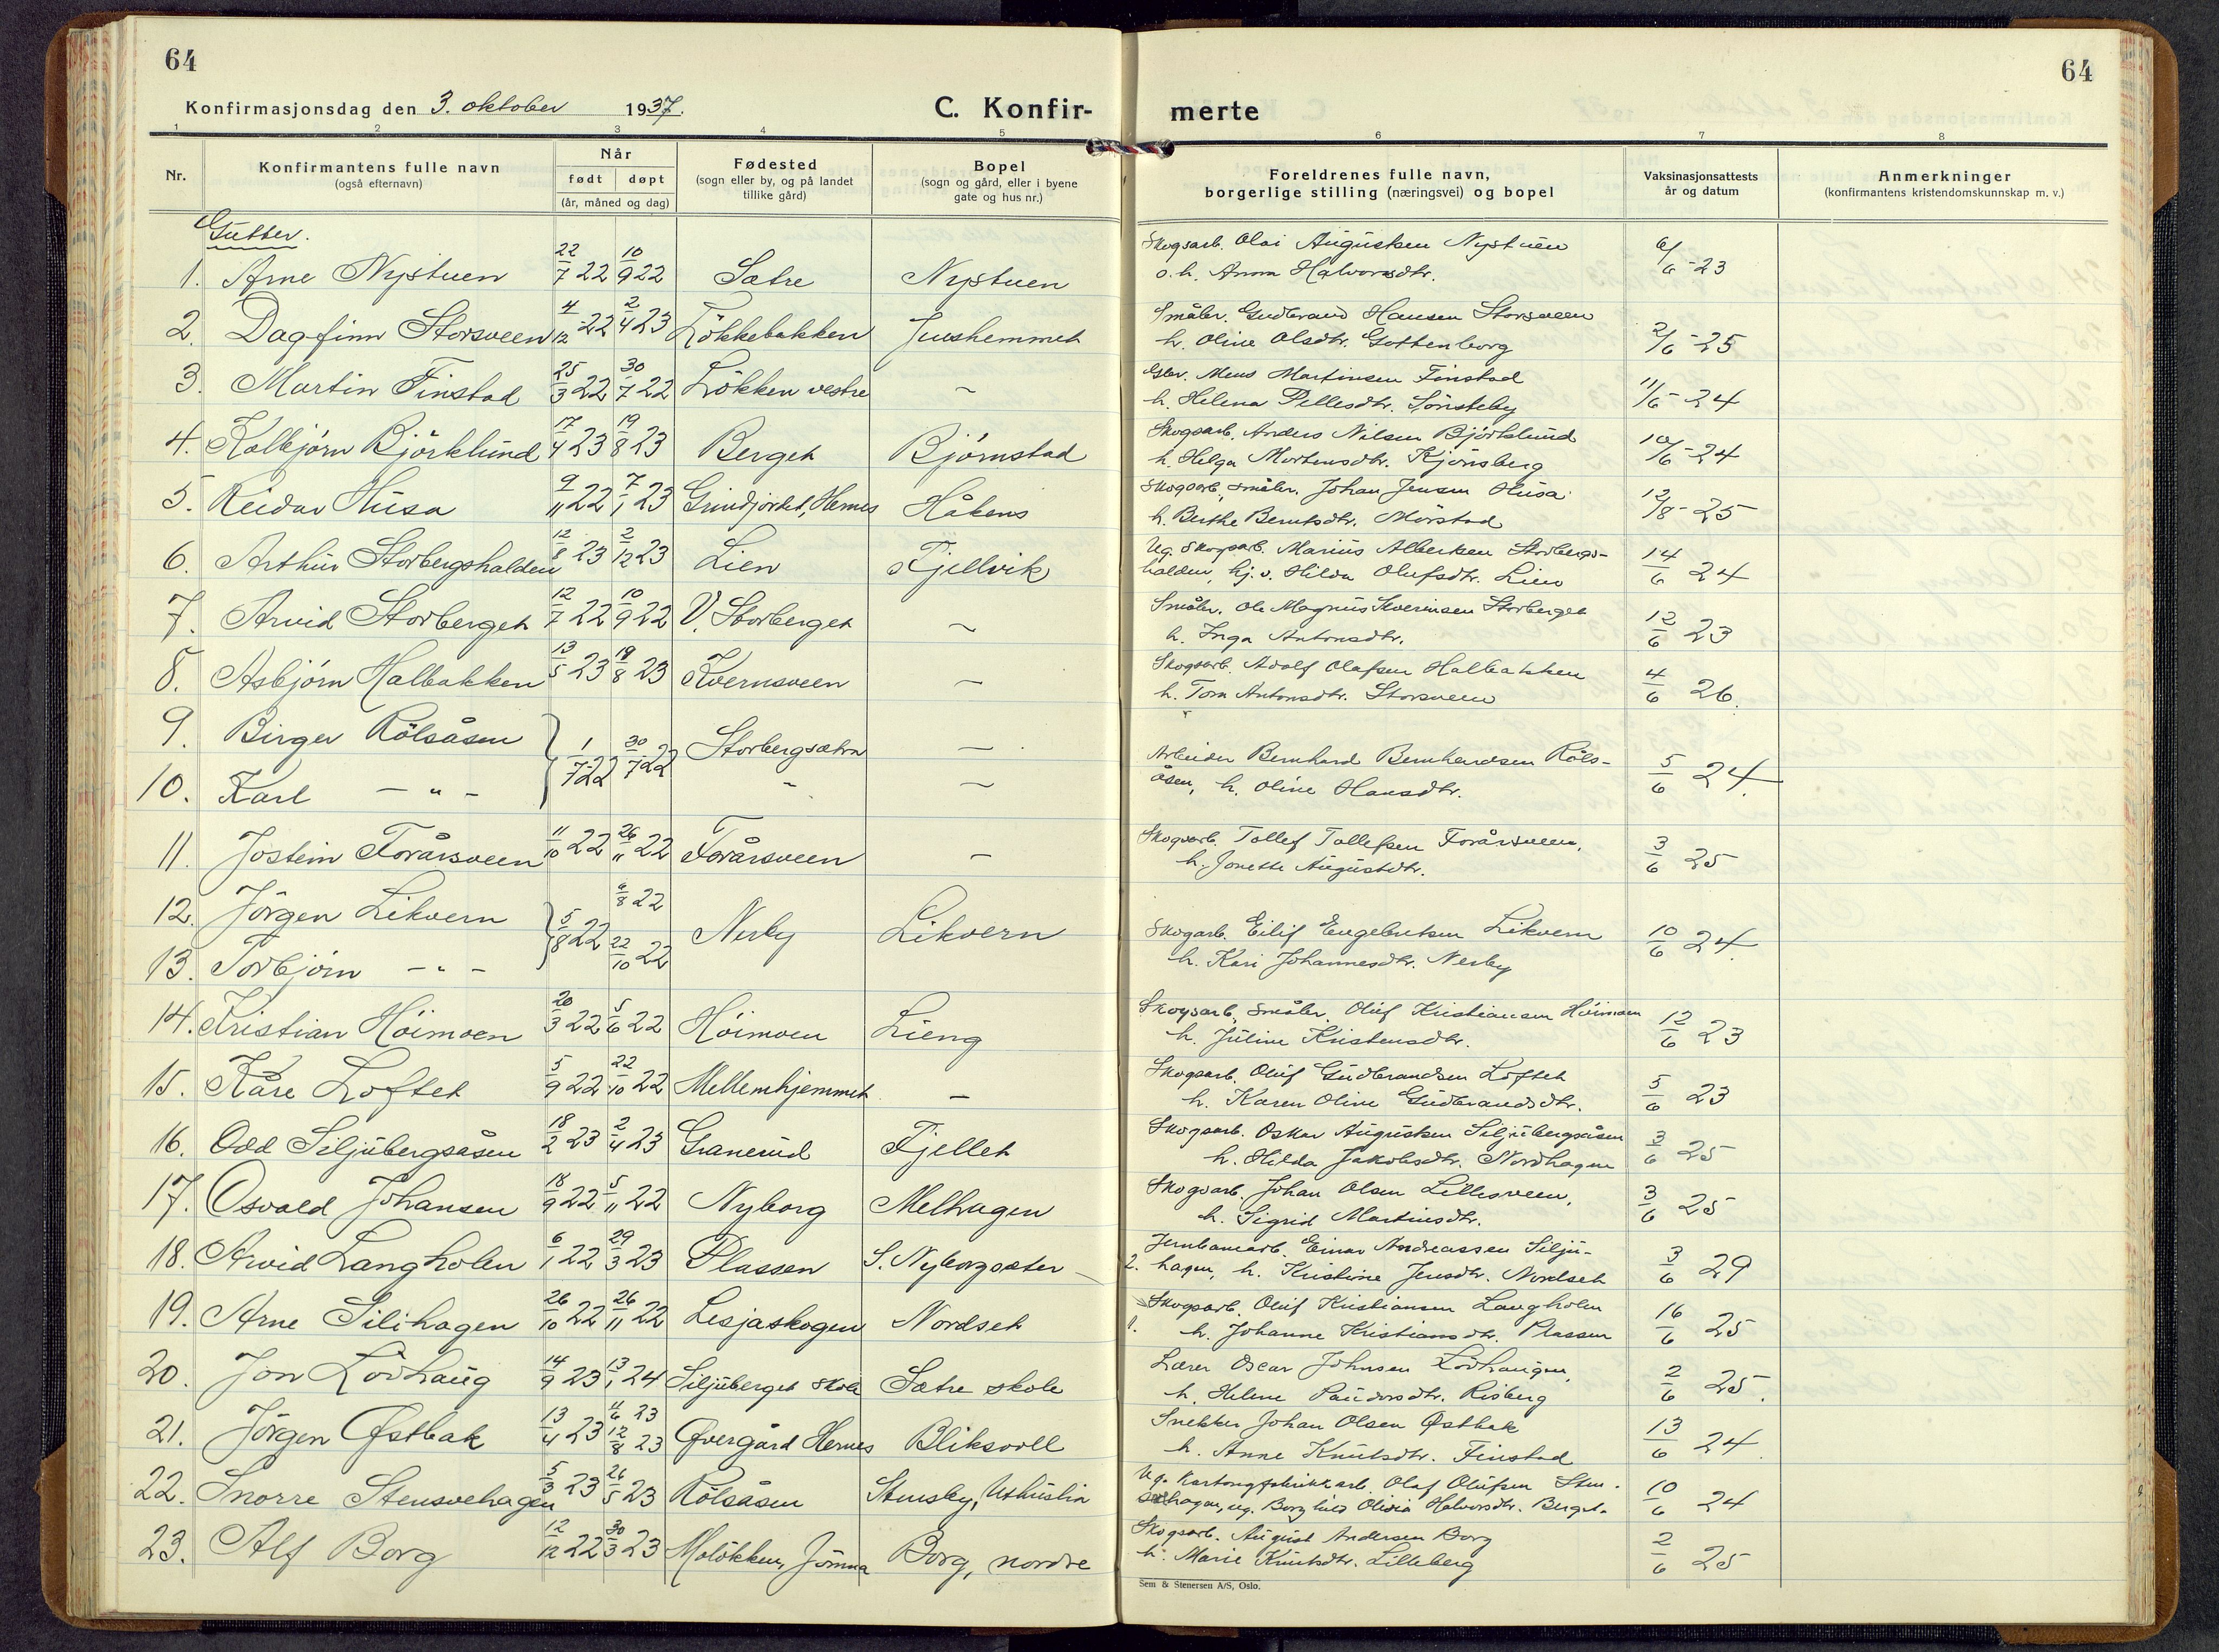 64
Konfirmasjonsdag den 3. oktober 1937.
C. Konfir-
1 2 3 4 5
Nr.
Konfirmantens fulle navn
(også efternavn)
Når
født døpt
(år, måned og dag)
Fødested
(sogn eller by, og på landet
tillike gård)
Bopel
(sogn og gård, eller i byene
gate og hus nr.)
Gutter.
1. Arne Nystuen 22/7 22 10/9 22 Sætre Nystuen
2. Dagfinn Storsveen 4/12 22 2/4 23 Løkkebakken
3. Martin Finstad 25/3 22 30/7 22 Løkken vestre –
4. Kolbjørn Björklund 17/4 23 19/8 23 Berget Bjørnstad
5. Reidar Husa 9/11 22 7/1 23 Grindjordet, Hernes Håkens
6. Arthur Storbergshalden 12/8 23 2/12 23 Lien Fjellvik
7. Arvid Storberget 12/7 22 10/9 22 V. Storberget –
8. Asbjørn Halbakken 13/5 23 19/8 23 Kvernsveen –
9. Birger Rölsåsen 1/7 22 30/7 22 Storbergsætra –
10. Karl – " – – –
11. Jostein Forårsveen 11/10 22 26/11 22 Forårsveen –
12. Jörgen Likvern 5/8 22 6/8 22 Nerby Likvern
13. Torbjørn – " – 22/10 22
14. Kristian Höimoen 20/3 22 5/6 22 Höimoen Lieng
15. Kåre Loftet 5/9 22 22/10 22 Mellemhjemmet –
16. Odd Siljubergsåsen 18/2 23 2/4 23 Granerud Fjellet
17. Osvald Johansen 18/9 22 5/11 22 Nyborg Melhagen
18. Arvid Langholen 6/1 22 29/3 23 Plassen S. Nyborgsæter
19. Arne Silihagen 26/10 22 26/11 22 Lesjaskogen Nordset
20. Jon Lövhaug 14/9 23 13/1 24 Siljuberget skole Sætre skole
21. Jörgen Østbak 13/4 23 11/6 23 12/8 23 Øvergård Hernes Bliksvoll
22. Snorre Stensvehagen 5/3 23 26/5 23 Rölsåsen Stensby,
23. Alf Borg 12/12 22 30/3 23 Molökken, Jömna Borg, nordre
64
merte
6 7 8
Foreldrenes fulle navn,
borgerlige stilling (næringsvei) og bopel
Vaksinasjonsattests
år og datum
Anmerkninger
(konfirmantens kristendomskunnskap m. v.)
Skogsarb. Olai Augustsen Nystuen
o. h. Anna Halvorsdtr. 6/6 - 23
Småbr. Gudbrand Hansen Storsveen
h. Oline Olsdtr. Gottenborg 2/6 - 25
Gbr. Mens Martinsen Finstad
h. Helena Pellesdtr. Sönsteby 11/6 - 24
Skogsarb. Anders Nilsen Björklund
h. Helga Mortensdtr. Kjönsberg 10/6 - 24
Skogsarb, småbr. Johan Jensen Husa
h. Berthe Berntsdtr. Mörstad 12/8 - 25
Ug. Skogsarb. Marius Albertsen Storbergs-
halden, hj.v. Hilda Olufsdtr. Lien 14/6 24
Småbr. Ole Magnus Severinsen Storberget
h. Inga Antonsdtr. 12/6 23
Skogsarb. Adolf Olafsen Halbakken
h. Tora Antonsdtr. Storsveen 4/6 26.
Arbeider Bernhard Bernhardsen Röls-
åsen, h. Oline Hansdtr. 5/6 24.
Skogsarb. Tollef Tollefsen Forårsveen,
h. Jonette Augustdtr. 3/6 25
Skogarb. Eilif Engebretsen Likvern
h. Kari Johannesdtr. Nerby 10/6 24.
Skogsarb, småbr. Oluf Kristiansen Höimoen
h. Juline Kristensdtr. 12/6 23
Skogsarb. Oluf Gudbrandsen Loftet
h. Karen Oline Gudbrandsdtr. 5/6 23
Skogsarb. Oskar Augustsen Siljubergsåsen
h. Hilda Jakobsdtr. Nordhagen 3/6 25
Skogsarb. Johan Olsen Lillesveen,
h. Sigrid Martinsdtr. 3/6 25
Jernbanearb. Einar Andreassen Silju-
2. hagen, h. Kristine Jensdtr. Nordset 3/6 29
Skogsarb. Oluf Kristiansen Langholen
1. h. Johanne Kristiansdtr. Plassen 16/6 25
Lærer Oscar Johnsen Lövhaugen,
h. Helene Paulsdtr. Risberg 2/6 25.
Snekker Johan Olsen Østbak
h. Anne Knutsdtr. Finstad 13/6 24
Ug. Kartongfabrikkarb. Olaf Olufsen Sten-
hagen, ug. Borghild Olivia Halvorsdtr. Berget. 10/6 24
Skogsarb. August Andersen Borg
h. Marie Knutsdtr. Lilleberg 2/6 25
Sem & Stenersen A/S, Oslo.